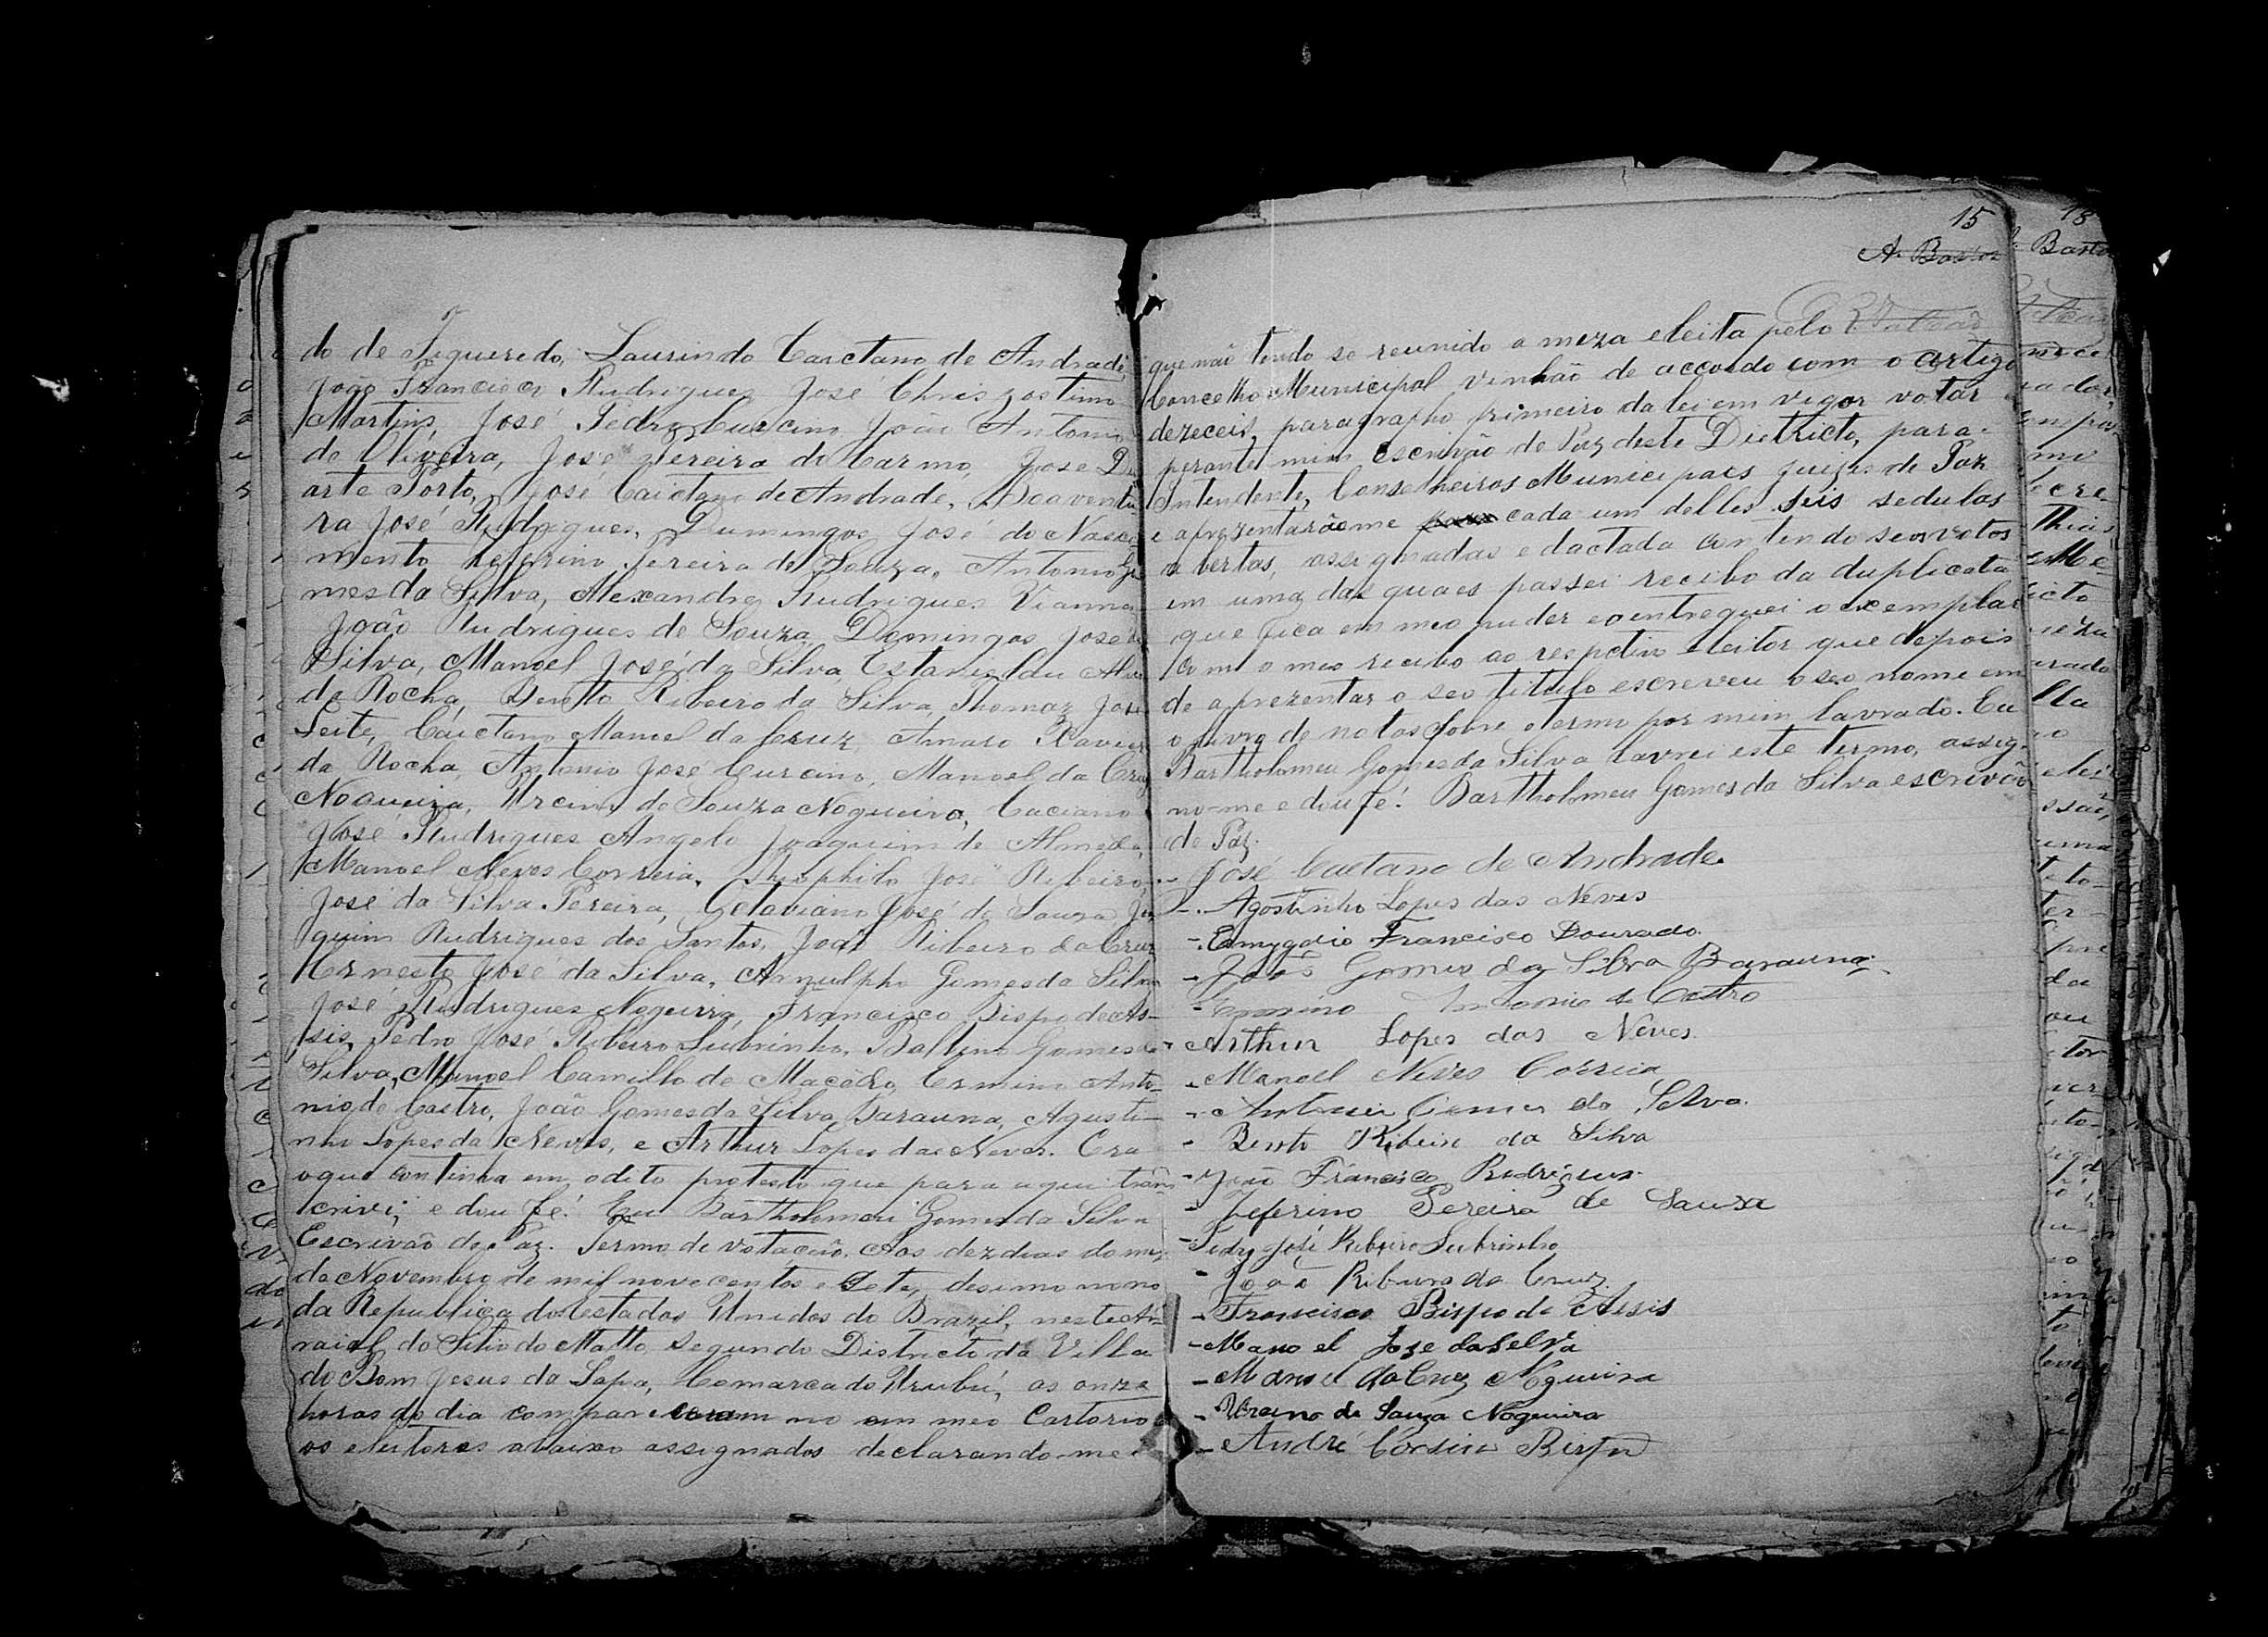 do de Figueredo, Laurindo Caictano de Andrade,
João Francisco Rudrigues José Chrizostimo
Martins, José Pedro Curcino João Antonio
de Oliveira, José Pereira do Carmo, José Du
arte Porto, José Caictano de Andrade, Boaventu
ra José Rudrigues, Dumingos José do Nasci
mento Zeferino Pereira de Souza, Antonio Go
mes da Silva, Alexandre Rudrigues Vianna
João Rudrigues de Souza, Domingos José da
Silva, Manoel José da Silva, Estanisláu Alve
da Rocha, Bento Ribeiro da Silva, Thomaz José
Leite, Caictano Manoel da Cruz, Amaro Xavier
da Rocha, Antonio José Curcino, Manoel da Cruz
Nogueira, Urcino de Souza Nogueira, Caciano
José Rudrigues Angelo Joaquim de Almeda,
Manoel Neves Correia, Theophilo José Ribeiro,
José da Silva Pereira, Octaviano José de Souza Joa
quim Rudrigues dos Santos, João Ribeiro da Cruz
Hernesto José da Silva, Arnulpho Gomes da Silva
José Rudrigues Nogueira, Francisco Bispo de As-
sis, Pedro José Ribeiro Subrinho, Gomes da
Silva, Manoel Camillo de Macêdo, Ermino Anto-
nio de Castro, João Gomes da Silva Barauna, Agusti-
nho Lopes da Neves, e Arthur Lopes das Neves. Era
o que continha em o dito protesto que para aqui trans-
crivi; e dou fé. Eu Bartholomeu Gomes da Silva
Escrivão de Paz. Termo de votação. Aos dez dias do mez
de Novembro de mil nove centos e Sete, desimo nono
da Republica dos Estados Unidos do Brazil, neste Ar
raial do Sitio do Matto segundo Districto da Villa
do Bom Jesus da Lapa, Comarca do Urubú, as onze
horas do dia compareceram no em meo Cartorio
os eleitores abaixo assignados declarando-me
15
A. Bastos
que não tendo se reunido a meza eleita pelo
Concelho Municipal vinhão de accordo com o artigo
dezeceis, paragrapho primeiro da lei em vigor votar
perante mim Escrivão de Paz deste Districto, para
Intendente, Conselheiros Municipaes juizes de Paz
e aprezentarãome para cada um delles seis sedulas
abertas, assignadas e dactada contendo seos votos
em uma das quaes passei recibo da duplicata
que fica em meo puder e entreguei o exemplar
com o meo recibo ao respctivo eleitor que depois
de aprezentar o seo titulo escreveu o seo nome em
o livro de notas sobre o termo por mim lavrado. Eu
Bartholomeu Gomes da Silva lavrei este termo, assig-
no-me e dou fé. Bartholomeu Gomes da Silva escrivão
de Paz.
- José Caetano de Andrade.
- Agostinho Lopes das Neves
- Emygdio Francisco Dourado.
- João Gomes da Silva Barauna.
- Ermino Antonio de Castro
- Arthur Lopes das Neves.
- Manoel Neves Corréia
- Antonio Gomes da Silva.
- Bento Ribeiro da Silva
- João Francisco Rudrigues.
- Zeferino Pereira de Sauza
- Pedro José Ribeiro Subrinho
- João Ribeiro da Cruz.
- Francisco Bispo de Assis
- Mano el Joze da Selva
- Manoel da Cruz Nogueira
- Urcino de Souza Nogueira
- André Corsino Bispo